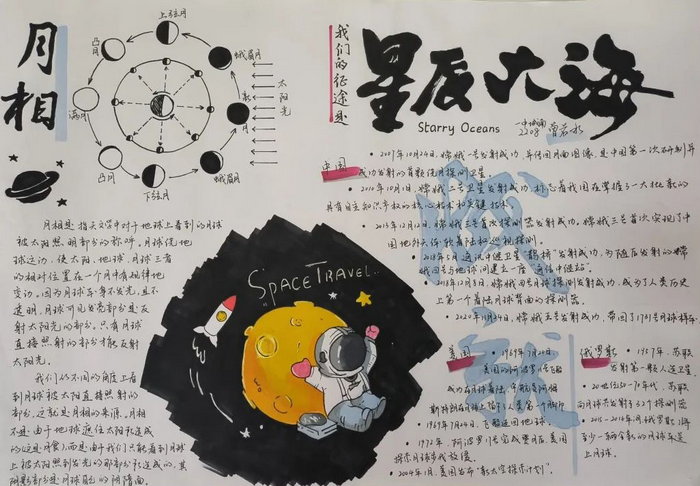 月相
上弦月
凸月
蛾眉月
满月
新月
太阳光
凸月
下弦月
蛾眉月
我们的征途是
星辰大海
Starry Oceans
2208
中国
2007年10月24日,嫦娥一号发射成功,并传回月面图像,是中国第一次
成功发射的首颗绕月探测卫星
2010年10月1日,嫦娥二号卫星发射成功,标志着我国在掌握了一大批新的
具有自主知识产权的核心技术和关键技术
2013年12月2日,嫦娥三号首次探测器发射成功。嫦娥三号首次实现了中
国地外天体软着陆和巡视探测。
2018年5月,通讯中继卫星"鹊桥"发射成功,为随后发射的嫦
娥四号与地球间建立一座"通信中继站"。
2018年12月8日,嫦娥四号月球探测发射成功,成为了人类历史
上第一个着陆月球背面的探测器。
2020年11月24日,嫦娥五号发射成功,带回了1731号月球样本
月球相是指天文学中对于地球上看到的月球
被太阳照明部分的称呼。月球绕地
球运动,使太阳、地球、月球三者
的相对位置在一个月中有规律地
变动。因为月球本身不发光,且不
透明,月球可见发亮部分是反
射太阳光的部分。只有月球
直接照射的部分才能反射
太阳光。
我们从不同的角度上看
到月球被太阳直接照射的
部分,这就是月相的来源。月相
不是由于地球遮住太阳所造成
的(这是月食),而是由于我们只能看到月球
上被太阳照到发光的那部分所造成的,其
阴影部分是月球自己的阴暗面。
SPACE TRAVEL
美国
1969年7月20日,
美国的阿波罗11号飞船
成功在月球着陆,宇航员阿姆
斯特朗在月球上踏下人类第一个脚印
1969年7月24日,飞船返回地球
1972年,"阿波罗17号完成登月后,美国
探索月球步伐放缓。
2004年1月,美国发布"新太空探索计划"。
俄罗斯
1957年,苏联
发射第一颗人造卫星
20世纪50-70年代,苏联
向月球发射多个探测器